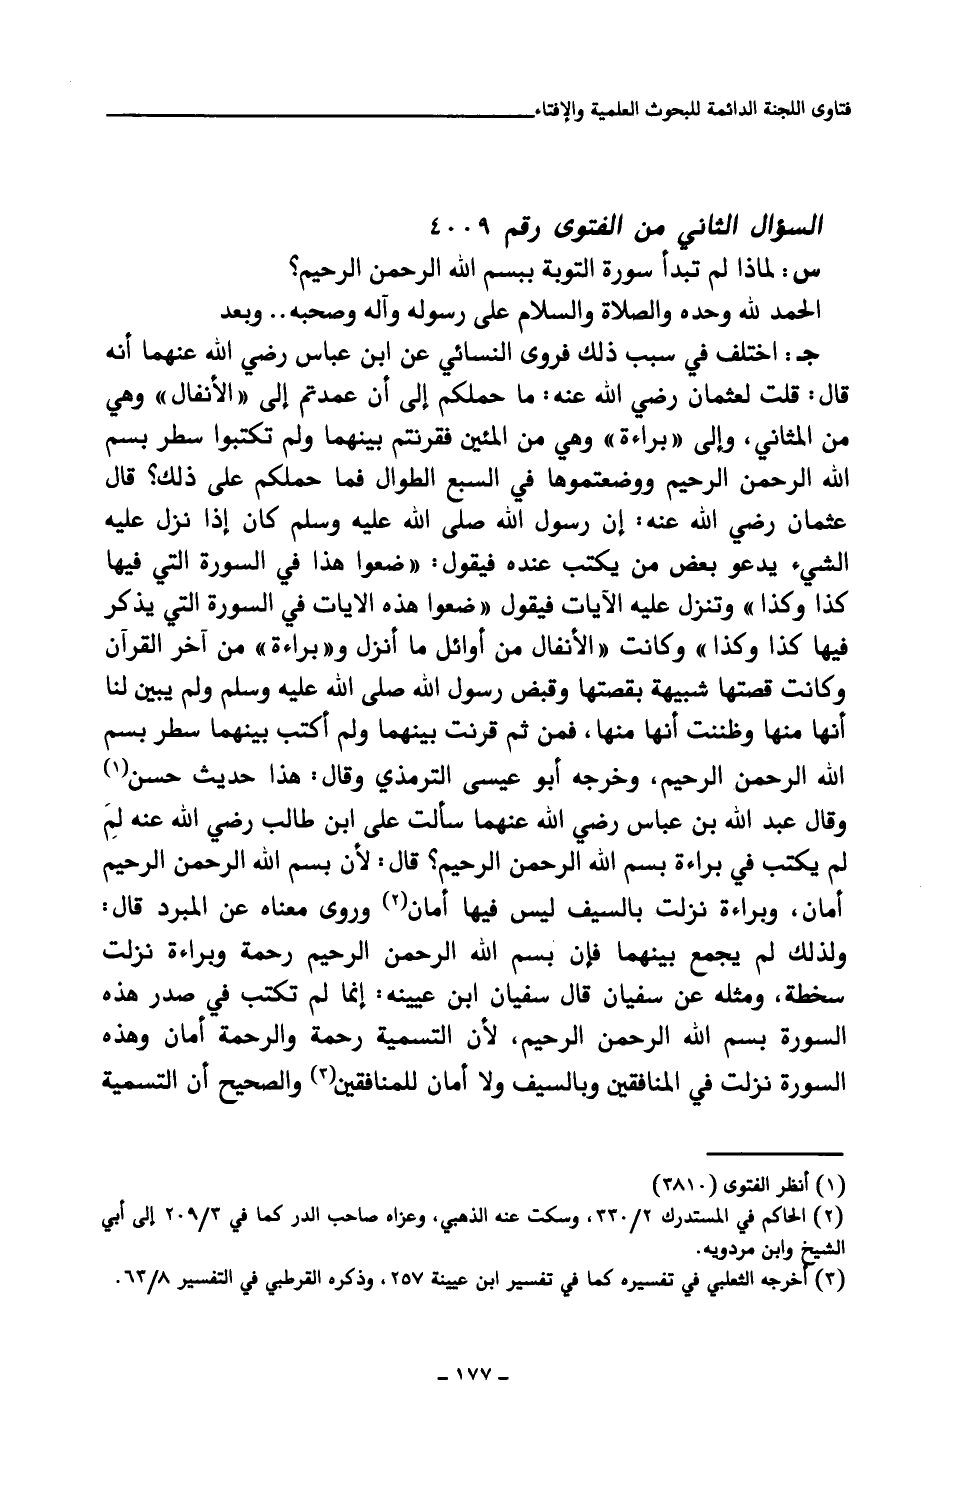 فتاوى اللجنة الدائمة للبحوث العلمية والإفتاء
السؤال الثاني من الفتوى رقم ٤٠٠٩
س: لماذا لم تبدأ سورة التوبة ببسم الله الرحمن الرحيم؟
الحمد لله وحده والصلاة والسلام على رسوله وآله وصحبه.. وبعد
جـ: اختلف في سبب ذلك فروى النسائي عن ابن عباس رضي الله عنهما أنه
قال: قلت لعثمان رضي الله عنه: ما حملكم إلى أن عمدتم إلى «الأنفال» وهي
من المثاني، وإلى «براءة» وهي من المئين فقرنتم بينهما ولم تكتبوا سطر بسم
الله الرحمن الرحيم ووضعتموها في السبع الطوال فما حملكم على ذلك؟ قال
عثمان رضي الله عنه: إن رسول الله صلى الله عليه وسلم كان إذا نزل عليه
الشيء يدعو بعض من يكتب عنده فيقول: «ضعوا هذا في السورة التي فيها
كذا وكذا» وتنزل عليه الآيات فيقول «ضعوا هذه الايات في السورة التي يذكر
فيها كذا وكذا» وكانت «الأنفال من أوائل ما أنزل و«براءة» من آخر القرآن
وكانت قصتها شبيهة بقصتها وقبض رسول الله صلى الله عليه وسلم ولم يبين لنا
أنها منها وظننت أنها منها، فمن ثم قرنت بينهما ولم أكتب بينهما سطر بسم
الله الرحمن الرحيم، وخرجه أبو عيسى الترمذي وقال: هذا حديث حسن(١)
وقال عبد الله بن عباس رضي الله عنهما سألت على ابن طالب رضي الله عنه لِمَ
لم يكتب في براءة بسم الله الرحمن الرحيم؟ قال: لأن بسم الله الرحمن الرحيم
أمان، وبراءة نزلت بالسيف ليس فيها أمان(٢) وروى معناه عن المبرد قال:
ولذلك لم يجمع بينهما فإن بسم الله الرحمن الرحيم رحمة وبراءة نزلت
سخطة، ومثله عن سفيان قال سفيان ابن عيينه: إنما لم تكتب في صدر هذه
السورة بسم الله الرحمن الرحيم، لأن التسمية رحمة والرحمة أمان وهذه
السورة نزلت في المنافقين وبالسيف ولا أمان للمنافقين(٣) والصحيح أن التسمية
(١) أنظر الفتوى (٣٨١٠)
(٢) الحاكم في المستدرك ٣٣٠/٢، وسكت عنه الذهبي، وعزاه صاحب الدر كما في ٢٠٩/٣ إلى أبي
الشيخ وابن مردويه.
(٣) أخرجه الثعلبي في تفسيره كما في تفسير ابن عيينة ٢٥٧، وذكره القرطبي في التفسير ٦٣/٨.
ـ ١٧٧ ـ